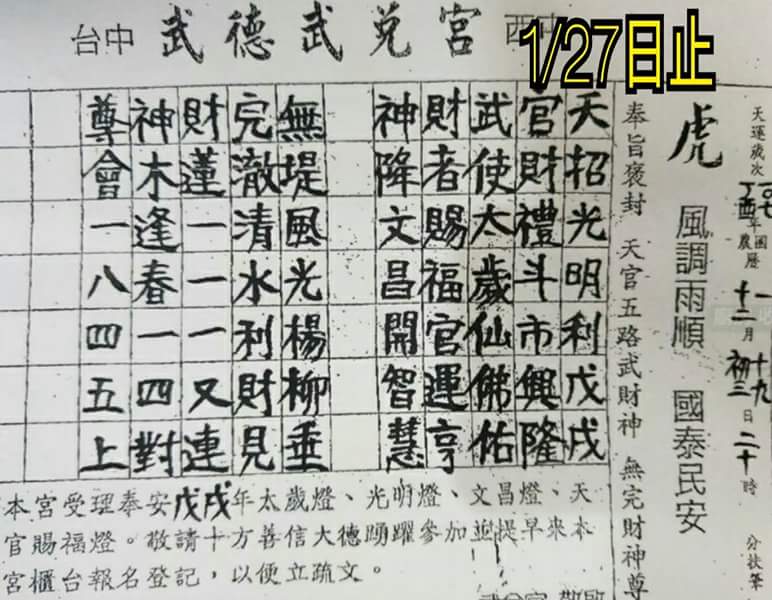 台中 武德武兌宮
1/27日止
天運歲次丁酉年
國曆一月十九日二十時
農曆十二月初三
分扶筆
虎 風調雨順 國泰民安
奉旨褒封 天官五路武財神 無完財神尊
天招光明利戊戌
官財禮斗市興隆
武使太歲仙佛佑
財者賜福官運亨
神降文昌開智慧
無堤風光楊柳垂
完澈清水利財見
財蓮一一一又連
神木逢春一四對
尊會一八四五上
本宮受理奉安戊戌年太歲燈、光明燈、文昌燈、天
官賜福燈。敬請十方善信大德踴躍參加並提早來本
宮櫃台報名登記,以便立疏文。